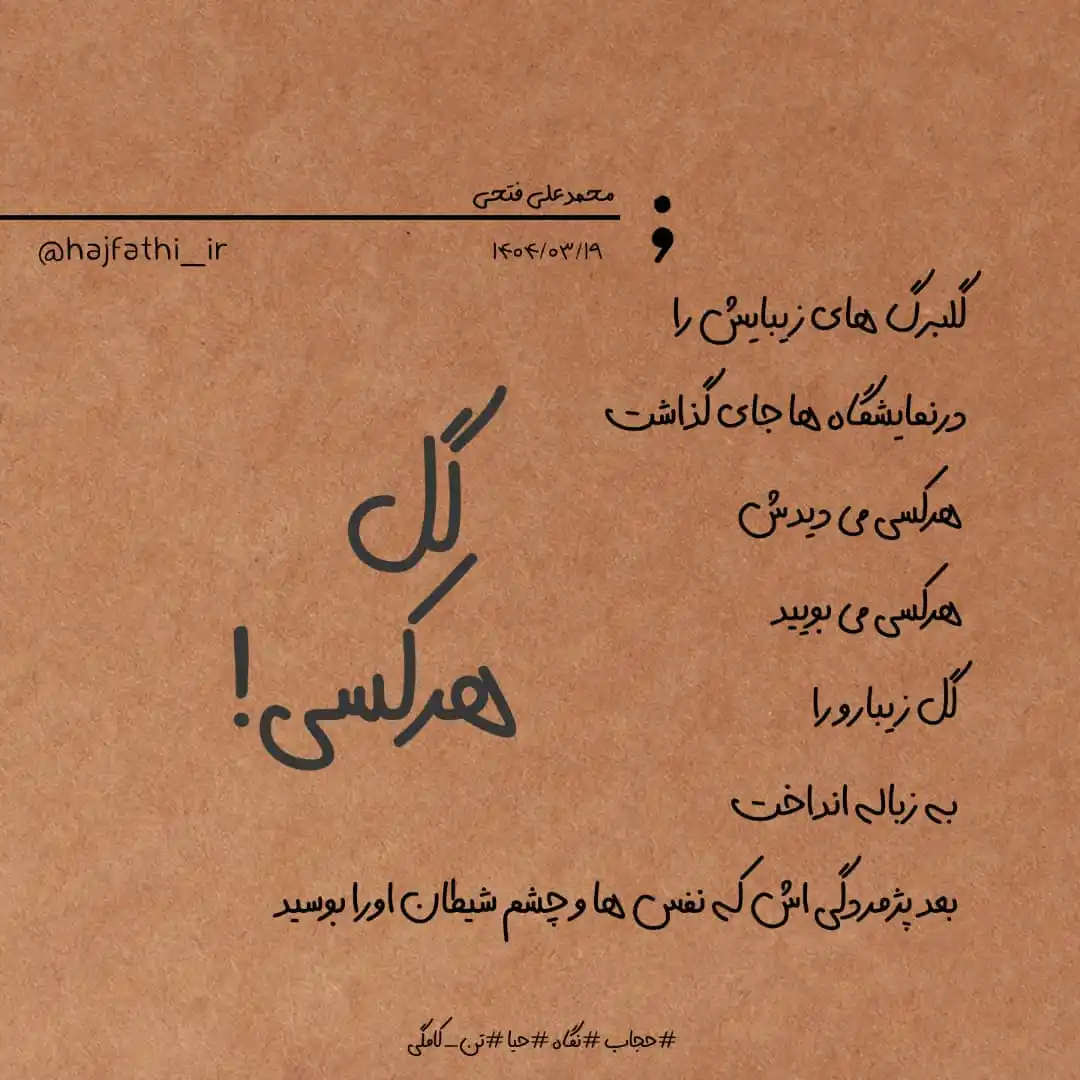 محمدعلی فتحی
؛
@hajfathi_ir
۱۴۰۴/۰۳/۱۹
گلبرگ های زیبایش را
درنمایشگاه ها جای گذاشت
هرکسی می دیدش
هرکسی می بویید
گل زیبارو را
به زباله انداخت
بعد پژمردگی اش که نفس ها و چشم شیطان اورا بوسید
گل
هرکسی!
#حجاب #نگاه #حیا #تن_کامگی